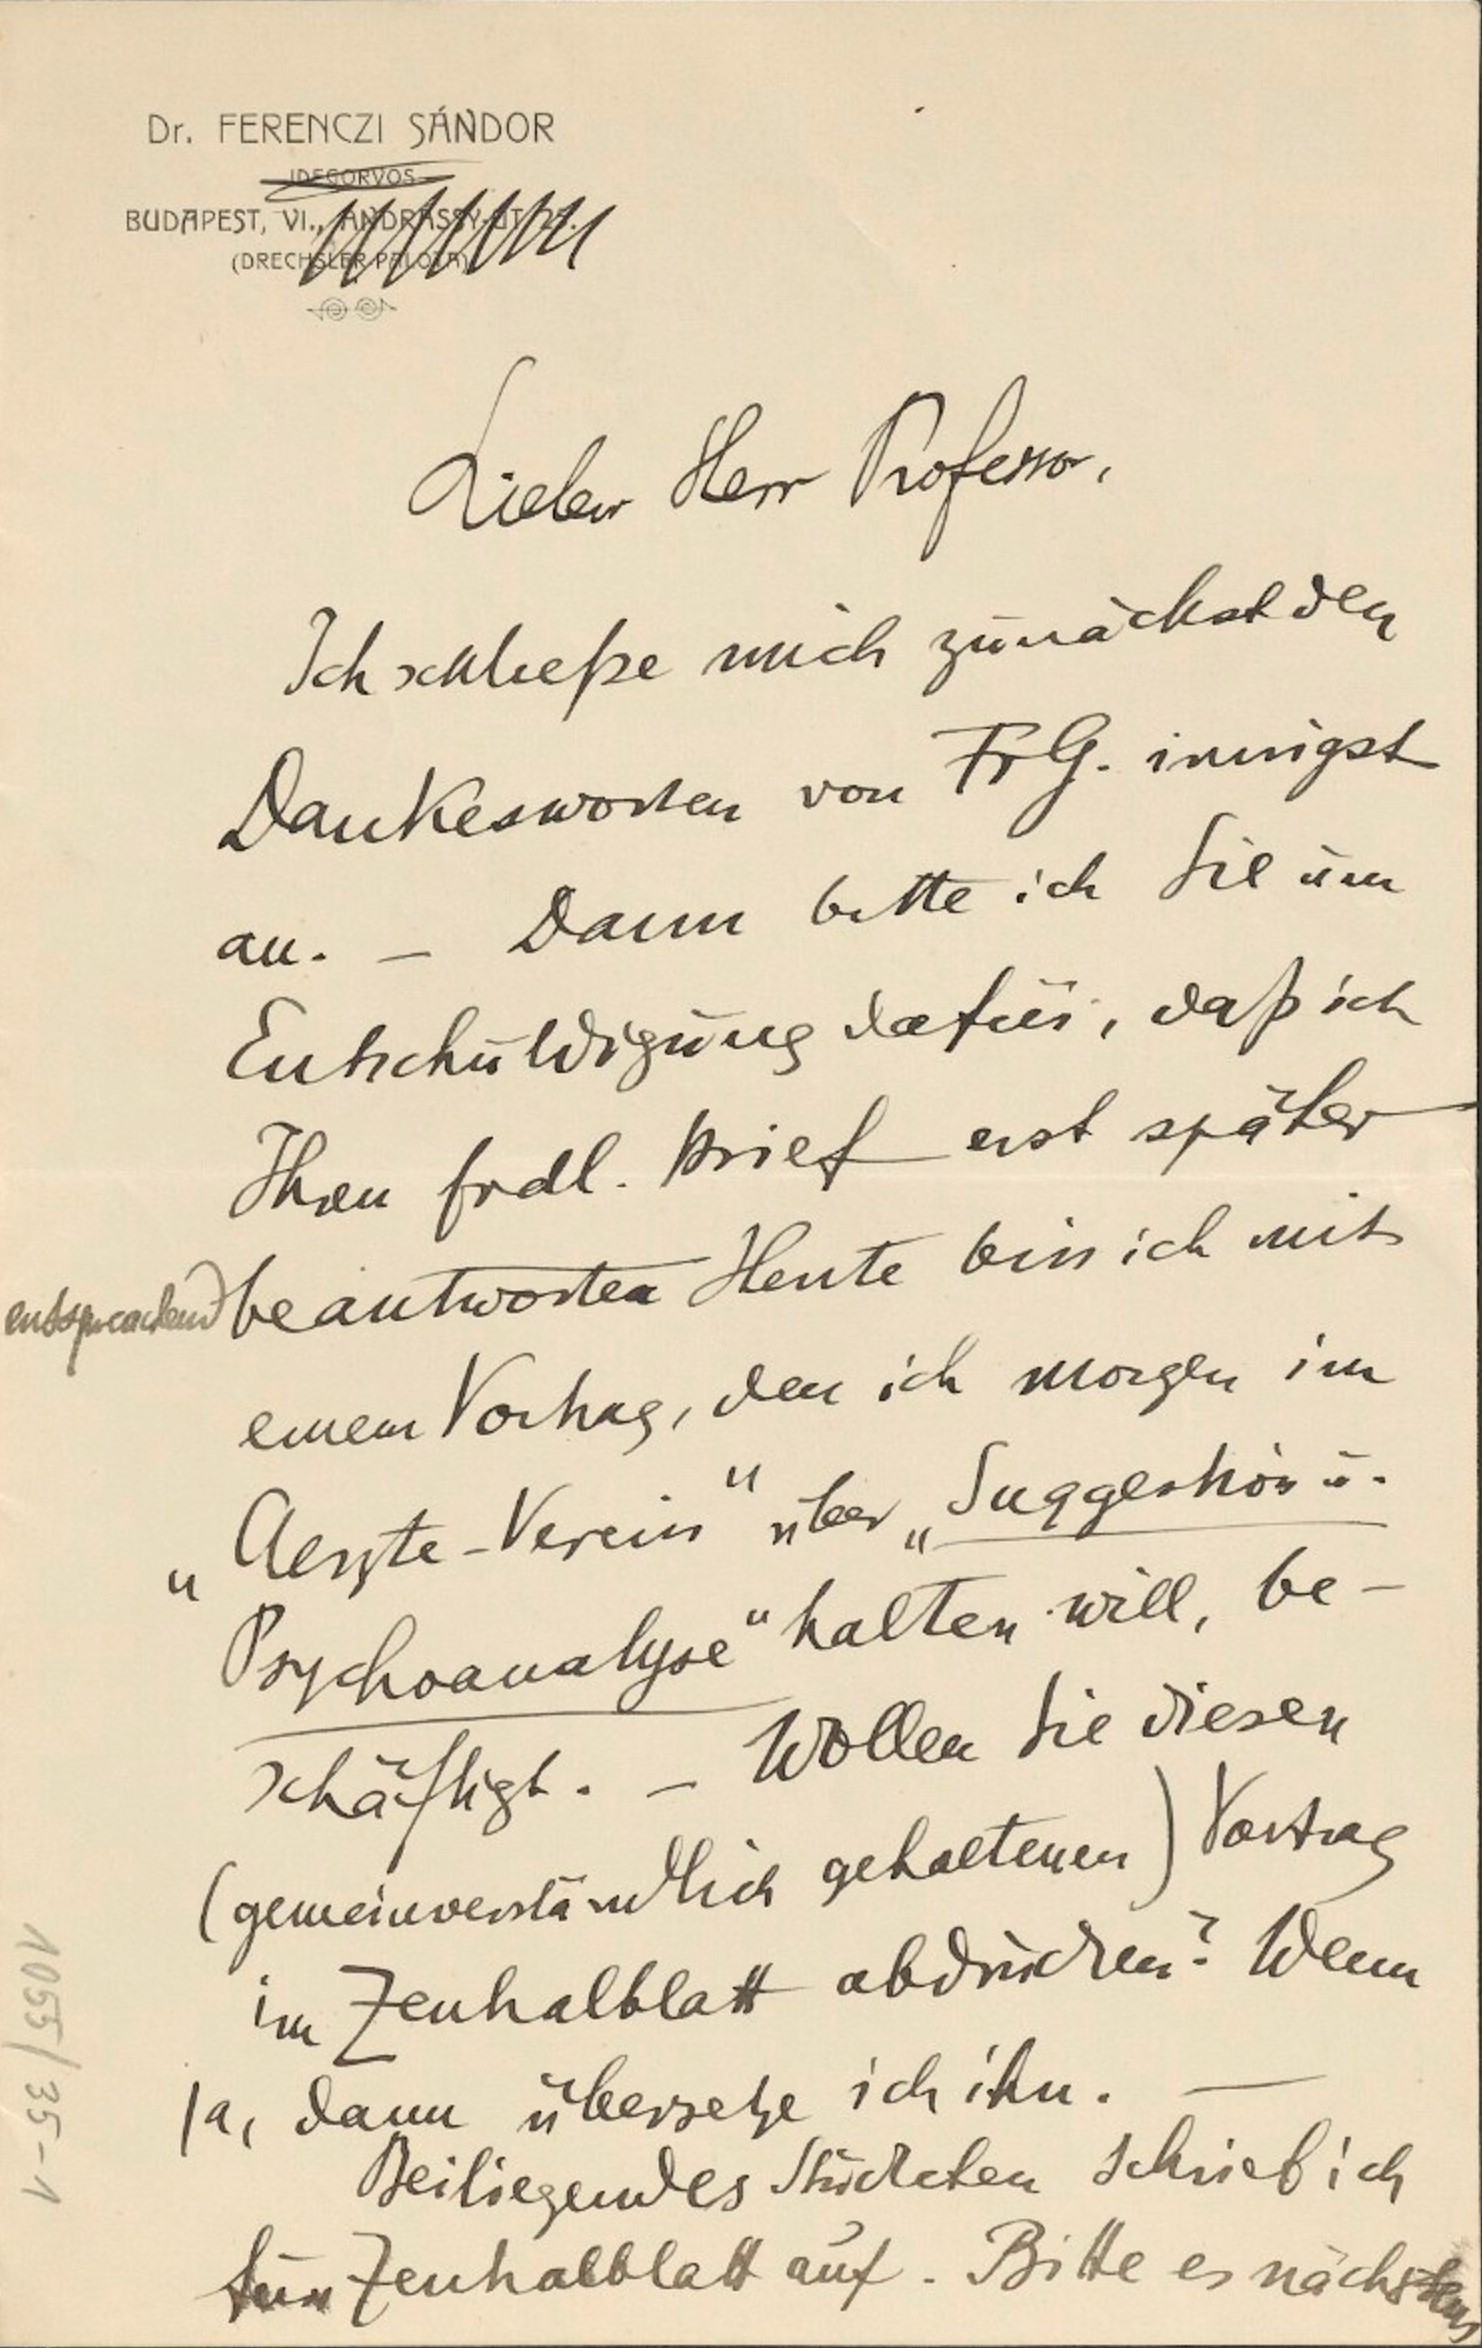 Dr. FERENCZI SÁNDOR
IDEGORVOS
BUDAPEST, VI., ANDRÁSSY-UT
(DRECHSLER-PALOTA)
Lieber Herr Professor,
Ich schließe mich zunächst den
Dankesworten von Fr G. innigst
an. — Dann bitte ich Sie um
Entschuldigung dafür, daß ich
Ihren frdl. Brief erst später
entsprechend beantworten Heute bin ich mit
einem Vortrag, den ich morgen im
„Aerzte-Verein" über „Suggestion u.
Psychoanalyse" halten will, be-
schäftigt. — Wollen Sie diesen
(gemeinverständlich gehaltenen) Vortrag
im Zentralblatt abdrucken? Wenn
ja, dann übersetze ich ihn. —
Beiliegendes Stückchen schrieb ich
fürs Zentralblatt auf. Bitte es nächstens
1055/35-1